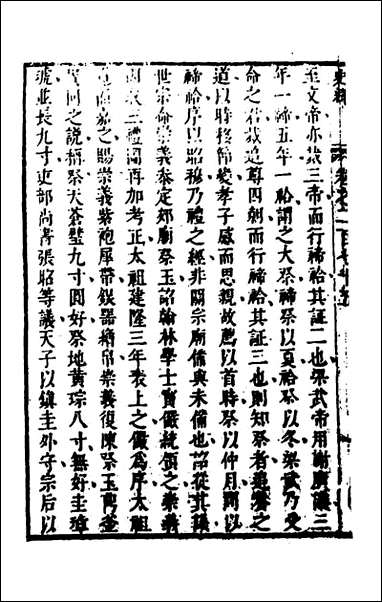 至文帝亦裁三帝而行禘祫其証二也梁武帝用謝廣議三
年一禘五年一祫謂之大祭禘祭以夏祫祭以冬梁武乃受
命之君裁追尊四朝而行禘祫其証三也則知祭者追養之
道以時移節變孝子感而思親故薦以首時祭以仲月間以
禘祫序以昭穆乃禮之經非關宗廟備與未備也詔從其議
世宗命崇義參定郊廟祭玉詔翰林學士竇儼統領之崇義
因取三禮圖再加考正太祖建隆三年表上之儼為序太祖
覽而嘉之賜崇義紫袍犀帶銀器繒帛崇義復陳祭玉鼎釜
異同之說稱祭天蒼璧九寸圓好祭地黃琮八寸無好圭璋
琥並長九寸吏部尚書張昭等議天子以鎮圭外守宗后以